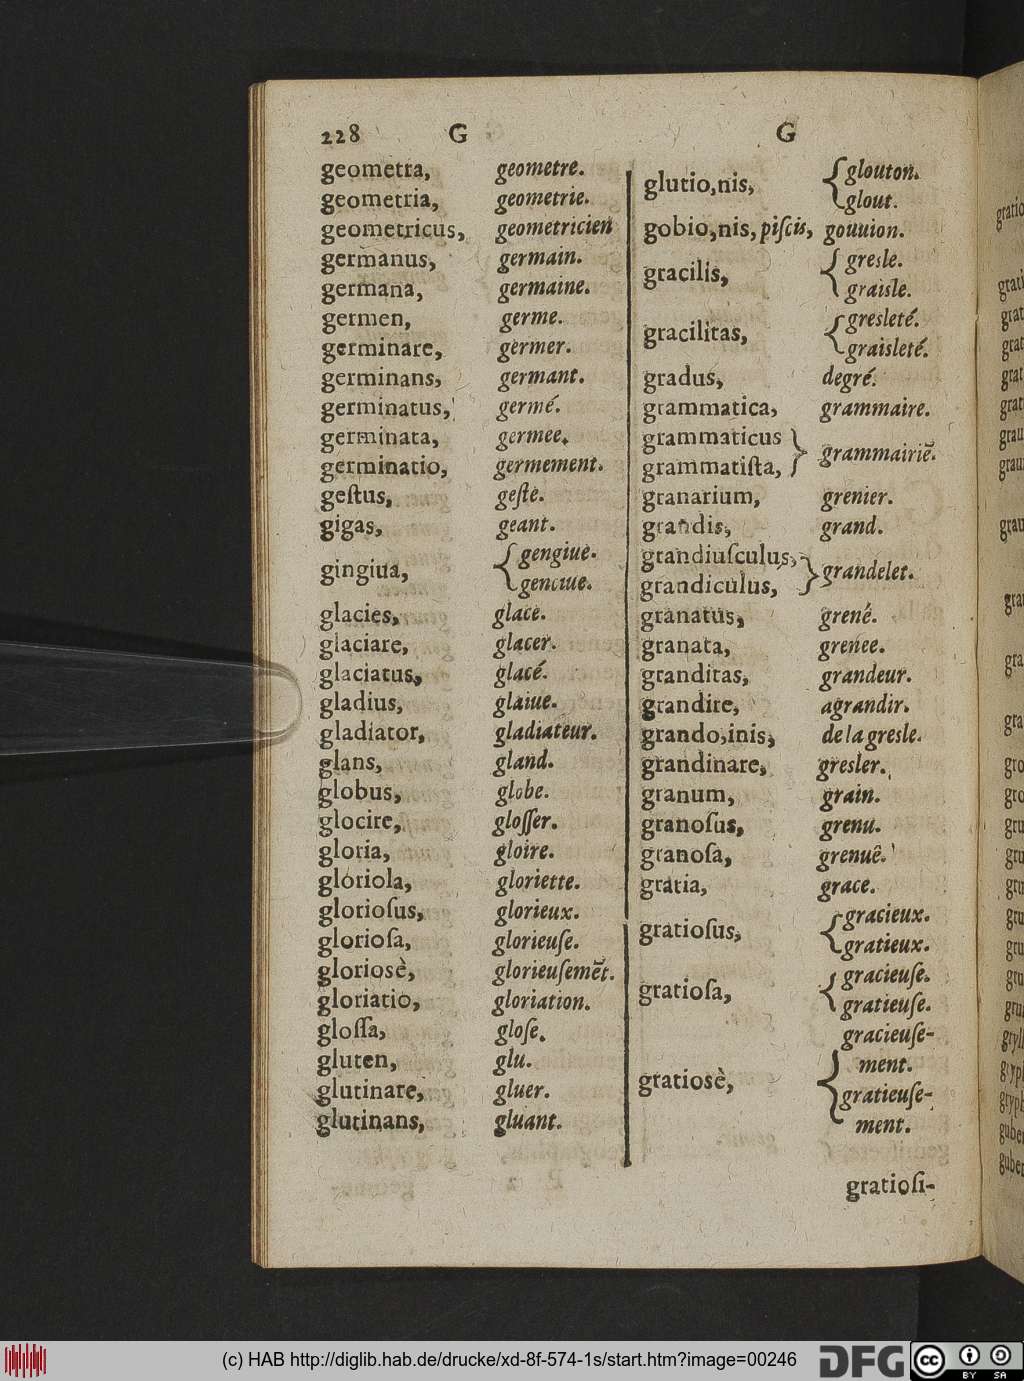 228 G G
geometra, geometre.
geometria, geometrie.
geometricus, geometricien
germanus, germain.
germana, germaine.
germen, germe.
germinare, germer.
germinans, germant.
germinatus, germé.
germinata, germee.
germinatio, germement.
geſtus, geſte.
gigas, geant.
gingiua, { gengiue.
genciue.
glacies, glace.
glaciare, glacer.
glaciatus, glacé.
gladius, glaiue.
gladiator, gladiateur.
glans, gland.
globus, globe.
glocire, gloſſer.
gloria, gloire.
gloriola, gloriette.
glorioſus, glorieux.
glorioſa, glorieuſe.
gloriosè, glorieuſemẽt.
gloriatio, gloriation.
gloſſa, gloſe.
gluten, glu.
glutinare, gluer.
glutinans, gluant.
glutio,nis, { glouton.
glout.
gobio,nis, piſcis, gouuion.
gracilis, { gresle.
graisle.
gracilitas, { gresleté.
graisleté.
gradus, degré.
grammatica, grammaire.
grammaticus
grammatiſta, } grammairiẽ.
granarium, grenier.
grandis, grand.
grandiuſculus,
grandiculus, } grandelet.
granatus, grené.
granata, grenee.
granditas, grandeur.
grandire, agrandir.
grando,inis, de la gresle.
grandinare, gresler.
granum, grain.
granoſus, grenu.
granoſa, grenuê.
gratia, grace.
gratioſus, { gracieux.
gratieux.
gratioſa, { gracieuſe.
gratieuſe.
gratiosè, { gracieuſe-
ment.
gratieuſe-
ment.
gratioſi-
(c) HAB http://diglib.hab.de/drucke/xd-8f-574-1s/start.htm?image=00246
DFG
cc BY SA